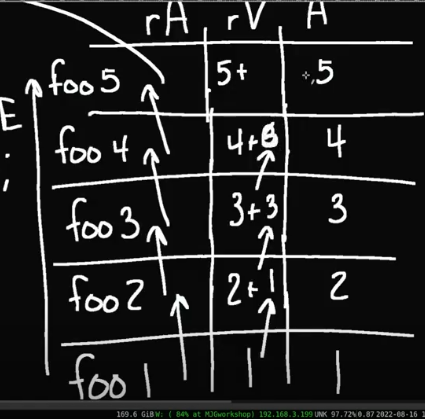 rA rV A
foo 5 5+ 5
foo 4 4+6 4
foo 3 3+3 3
foo 2 2+1 2
foo 1 1 1
E
;
169.6 GiB W: ( 84% at MJGworkshop) 192.168.3.199 UNK 97.72% 0.07 2022-08-16 1